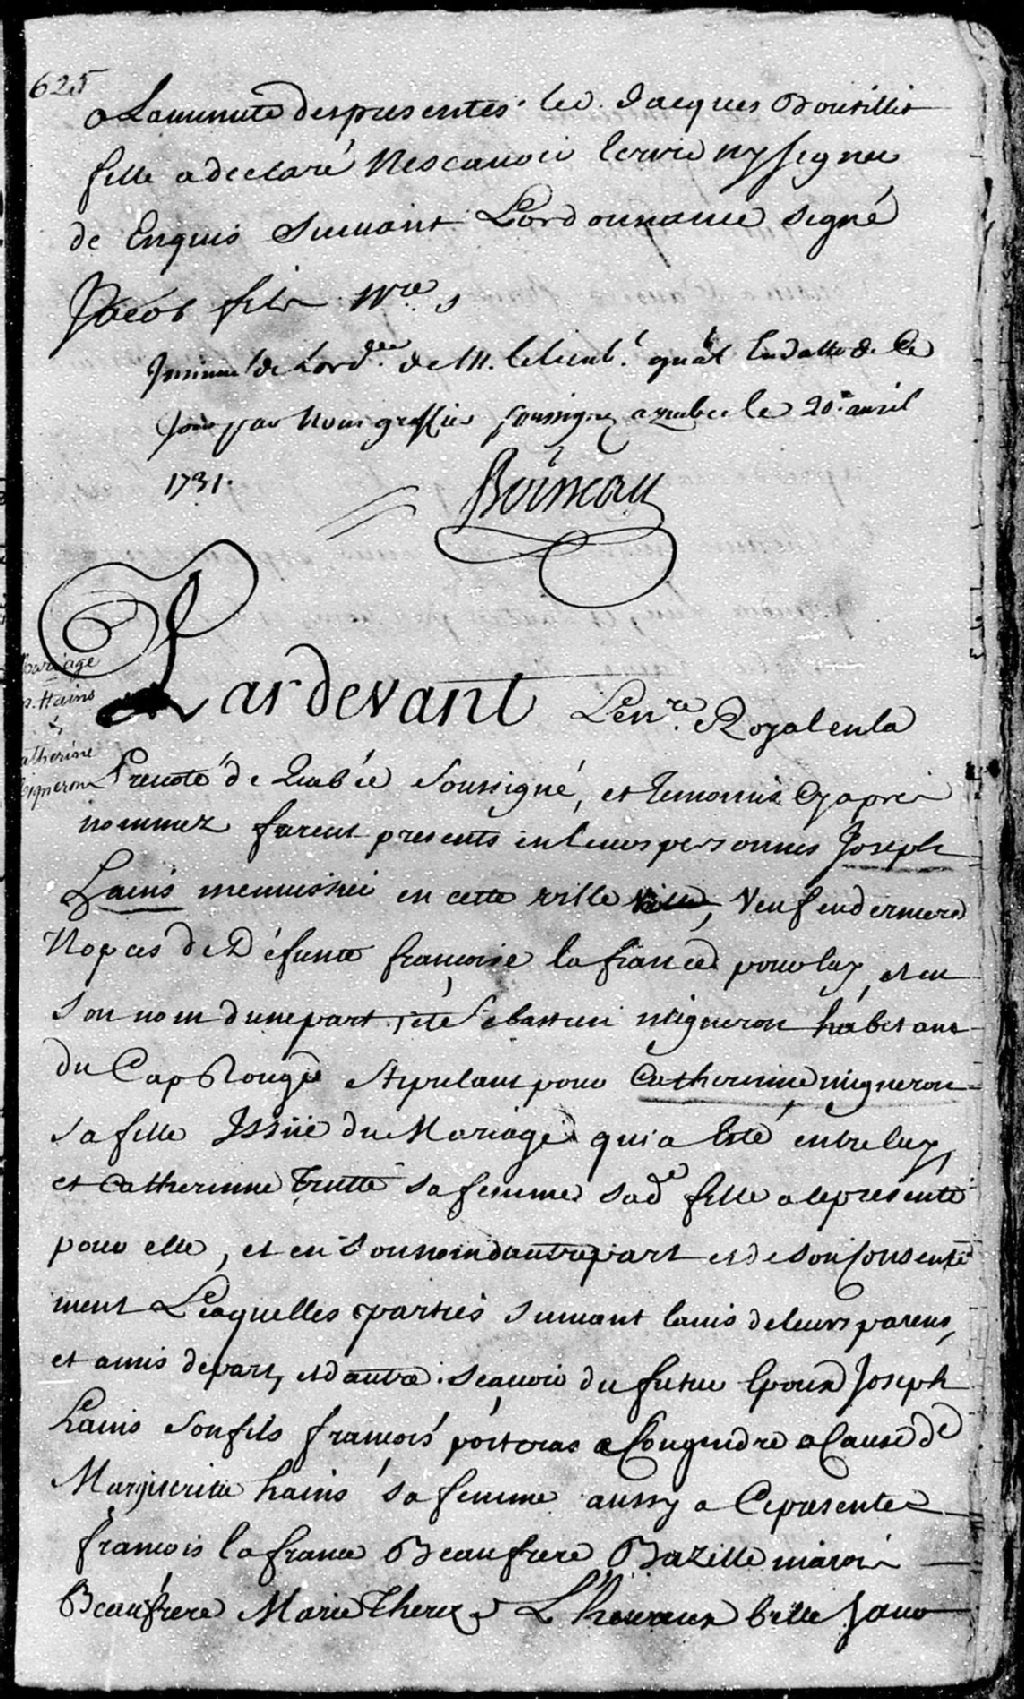 625
a La minute des presentes. led. Jacques Boutillet
fille a declaré Ne scauoir Ecrire ny signer
de Enquis Suiuant L'ordonnance signé
Jacob fils Nre,
Insinué de L'ord.ce de M. le Lieut.t En datte de Ce
Jour par Nous greffier soussigné a quebec le 20.e auril
1731.
Boisseau
Mariage
Hains
&
Catherine
Migneron
Pardevant Le n.re Royal en la
Preuoté de Quebéc Soussigné, et temoins Cy apres
nommez furent presents en leurs personnes Joseph
hains menuisier en cette ville, Veuf en dernieres
Nopces de Défunte francoise la france pour luy, et en
son nom dune part, et Sebastien migneron habitant
du Cap Rouge stipulant pour Catherinne migneron
sa fille Issüe du Mariage qui a Esté entre luy,
et Catherinne Trutte sa femme sad.e fille a ce presente
pour elle, et en son nom dautre part et de son Consente
ment Lesquelles parties suiuant lauis de leurs parens,
et amis de part, et dautre. scauoir du futur Epoux Joseph
hains son fils francois poitras son gendre a Cause de
Margueritte hains sa femme aussy a Ce presente
francois la france Beaufrere Bazille
Beaufrere Marie Therez L'heureux belle Soeur